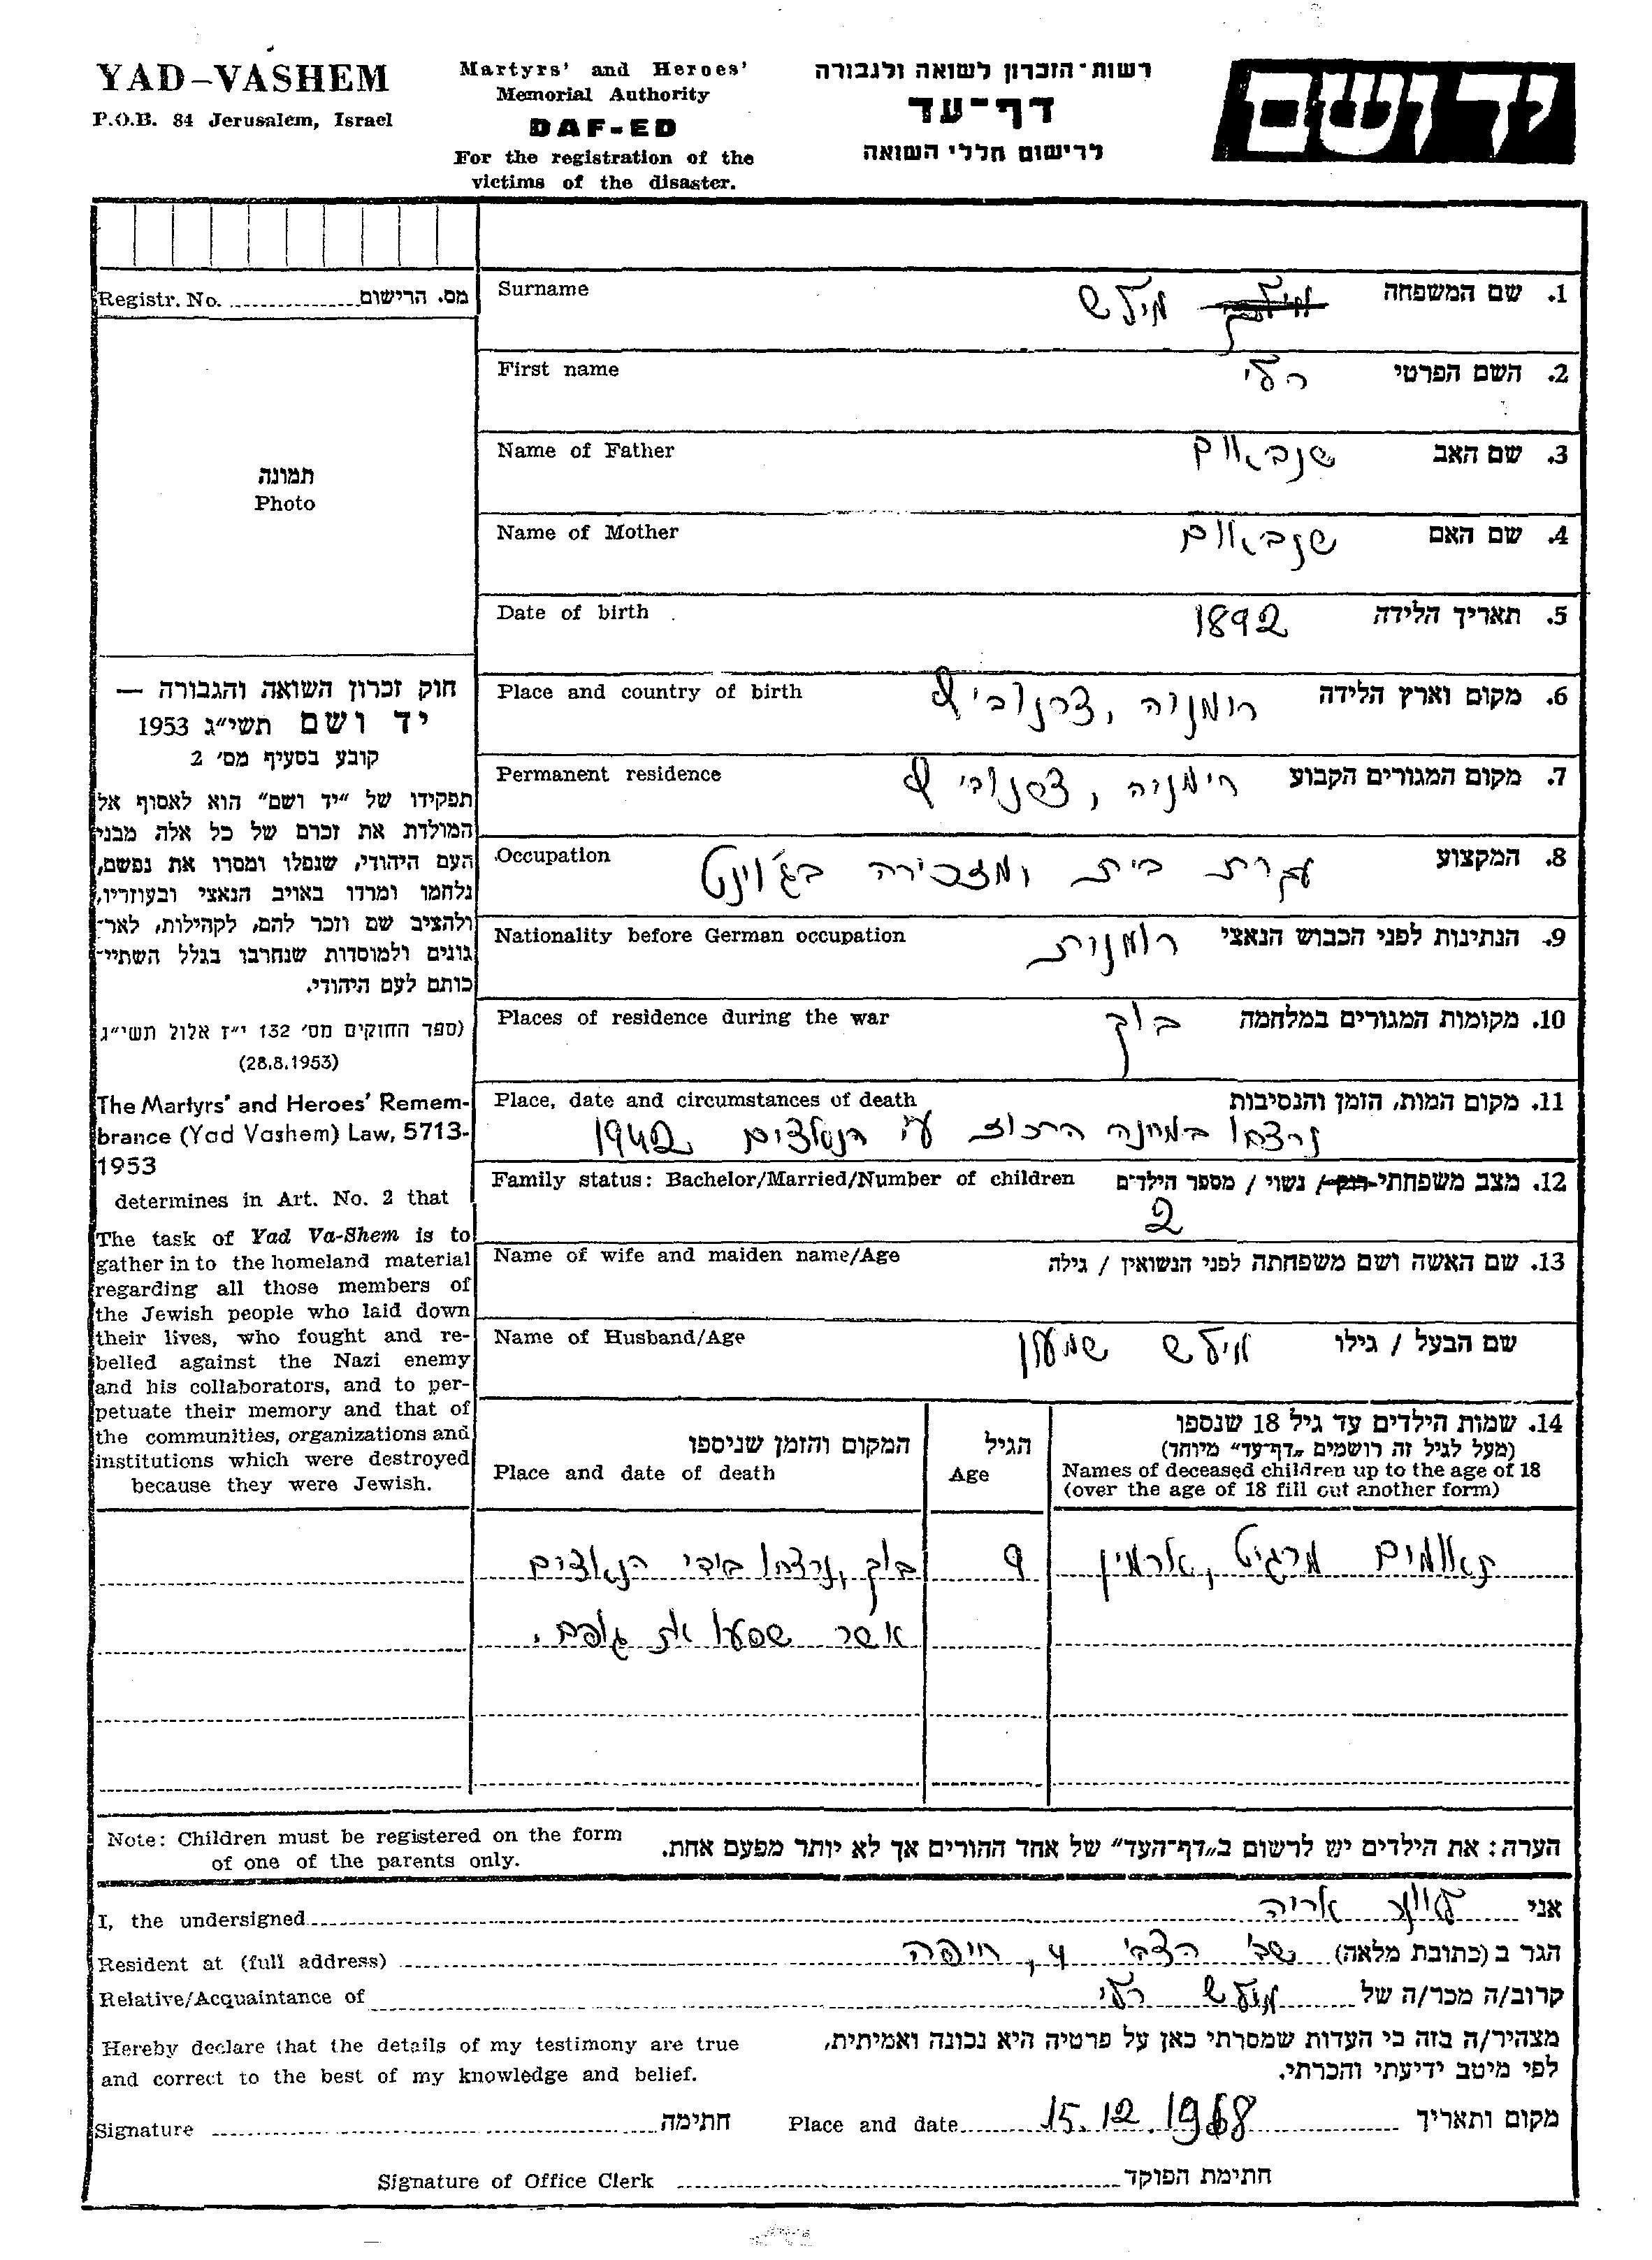 YAD-VASHEM
P.O.B. 84 Jerusalem, Israel
Martyrs' and Heroes'
Memorial Authority
DAF-ED
For the registration of the
victims of the disaster.
רשות-הזכרון לשואה ולגבורה
דף-עד
לרישום חללי השואה
יד ושם
Registr. No. מס. הרישום
תמונה
Photo
חוק זכרון השואה והגבורה —
יד ושם תשי״ג 1953
קובע בסעיף מס׳ 2
תפקידו של ״יד ושם״ הוא לאסוף אל
המולדת את זכרם של כל אלה מבני
העם היהודי, שנפלו ומסרו את נפשם,
נלחמו ומרדו באויב הנאצי ובעוזריו,
ולהציב שם וזכר להם, לקהילות, לאר־
גונים ולמוסדות שנחרבו בגלל השתיי־
כותם לעם היהודי.
(ספר החוקים מס׳ 132 י״ז אלול תשי״ג
(28.8.1953)
The Martyrs' and Heroes' Remem-
brance (Yad Vashem) Law, 5713-
1953
determines in Art. No. 2 that
The task of Yad Va-Shem is to
gather in to the homeland material
regarding all those members of
the Jewish people who laid down
their lives, who fought and re-
belled against the Nazi enemy
and his collaborators, and to per-
petuate their memory and that of
the communities, organizations and
institutions which were destroyed
because they were Jewish.
Surname 1. שם המשפחה
First name 2. השם הפרטי
Name of Father 3. שם האב שנבאום
Name of Mother 4. שם האם שנבאום
Date of birth 5. תאריך הלידה 1892
Place and country of birth 6. מקום וארץ הלידה רומניה, צרנוביץ
Permanent residence 7. מקום המגורים הקבוע רומניה, צרנוביץ
Occupation 8. המקצוע עקרת בית ומזכירה בג׳וינט
Nationality before German occupation 9. הנתינות לפני הכבוש הנאצי רומנית
Places of residence during the war 10. מקומות המגורים במלחמה בוג
Place, date and circumstances of death 11. מקום המות, הזמן והנסיבות
נרצחו במחנה הרכוז ע״י הנאצים 1942
Family status: Bachelor/Married/Number of children 12. מצב משפחתי רוק / נשוי / מספר הילדים
2
Name of wife and maiden name/Age 13. שם האשה ושם משפחתה לפני הנשואין / גילה
Name of Husband/Age שם הבעל / גילו שמעון
14. שמות הילדים עד גיל 18 שנספו
(מעל לגיל זה רושמים ״דף-עד״ מיוחד)
Names of deceased children up to the age of 18
(over the age of 18 fill out another form)
הגיל
Age
המקום והזמן שניספו
Place and date of death
תאומים מרגיט, ארמין 9 בוג, נרצחו בידי הנאצים
אשר שסעו את גופם.
Note: Children must be registered on the form
of one of the parents only.
הערה: את הילדים יש לרשום ב״דף-העד״ של אחד ההורים אך לא יותר מפעם אחת.
I, the undersigned אני אריה
Resident at (full address) הגר ב (כתובת מלאה) שב׳ הצבי 4, חיפה
Relative/Acquaintance of קרוב/ה מכר/ה של
Hereby declare that the details of my testimony are true
and correct to the best of my knowledge and belief.
מצהיר/ה בזה כי העדות שמסרתי כאן על פרטיה היא נכונה ואמיתית,
לפי מיטב ידיעתי והכרתי.
Signature חתימה Place and date 15.12.1968 מקום ותאריך
Signature of Office Clerk חתימת הפוקד